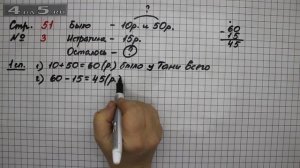 4p5.ru
?
Стр. 51 Было – 10р. и 50р.
№ 3 Истратила – 15р.
Осталось – ?
1 сп. 1) 10+50=60(р.) было у Тани всего
2) 60–15=45(р.)
- 60
15
45